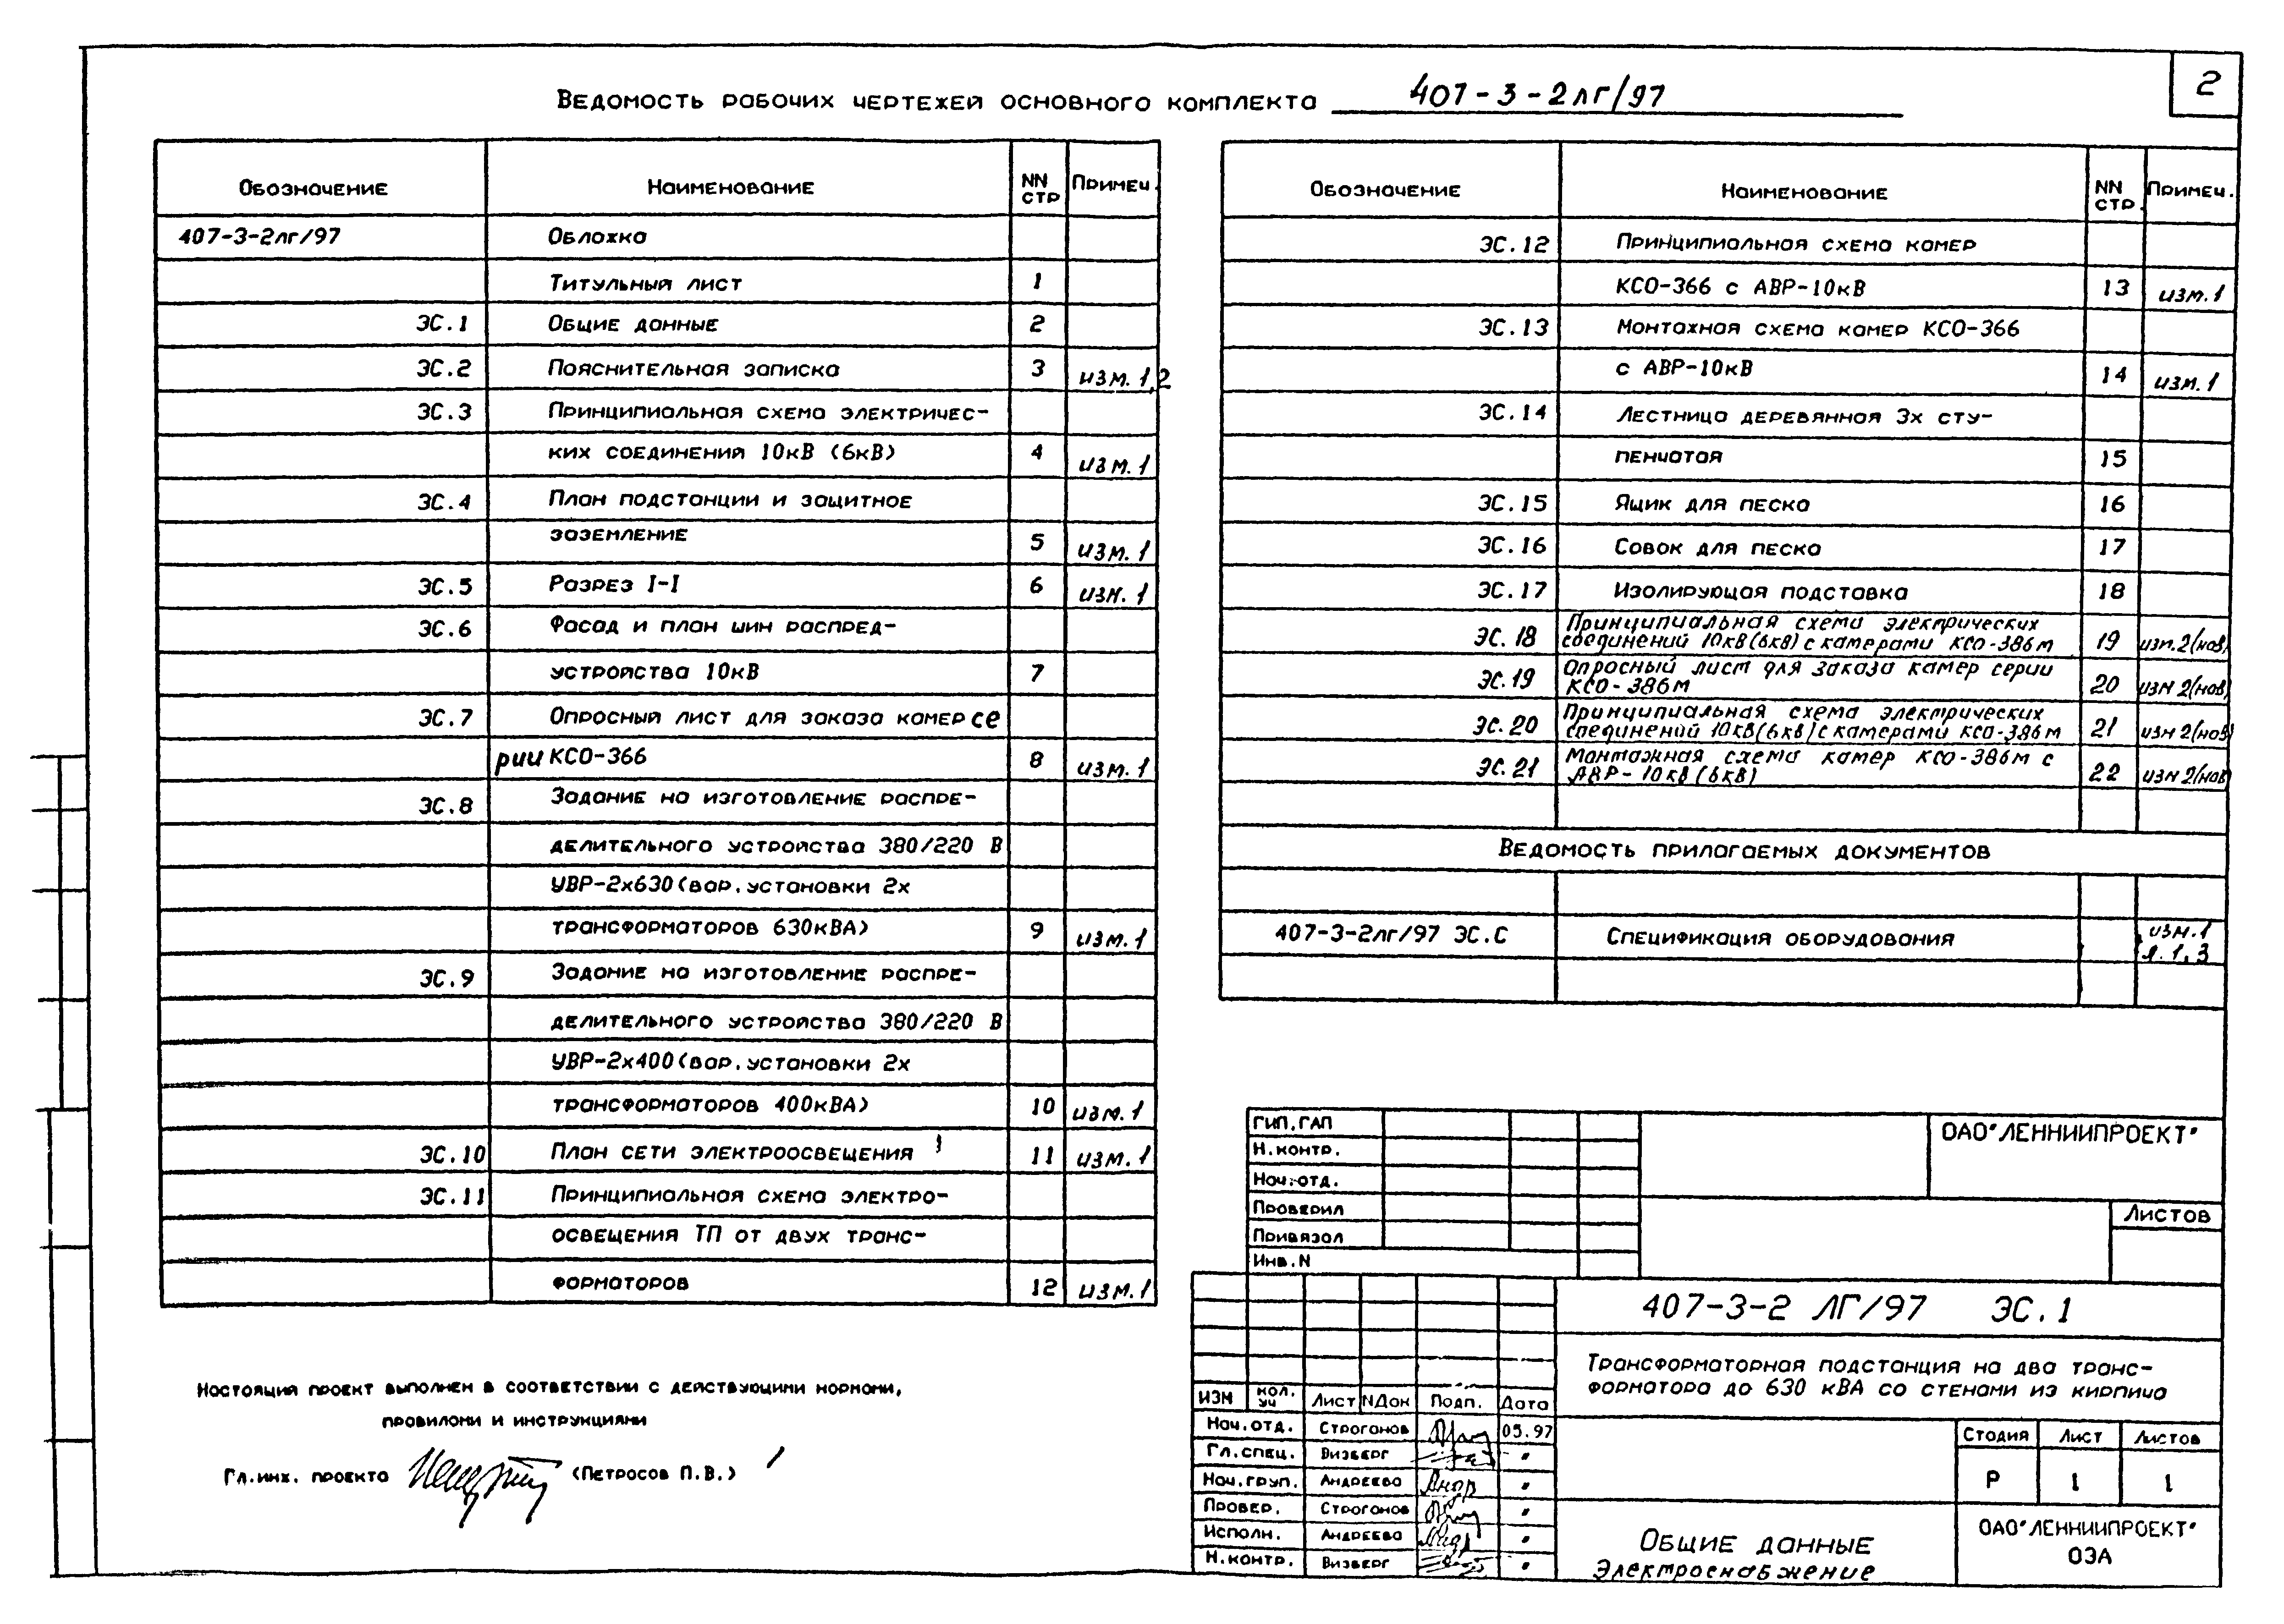 2
Ведомость рабочих чертежей основного комплекта 407-3-2лг/97
Обозначение Наименование NN стр Примеч.
407-3-2лг/97 Обложка
Титульный лист 1
ЭС.1 Общие данные 2
ЭС.2 Пояснительная записка 3 изм. 1,2
ЭС.3 Принципиальная схема электричес-
ких соединений 10кВ (6кВ) 4 изм. 1
ЭС.4 План подстанции и защитное
заземление 5 изм. 1
ЭС.5 Разрез I-I 6 изм. 1
ЭС.6 Фасад и план шин распред-
устройства 10кВ 7
ЭС.7 Опросный лист для заказа камер се
рии КСО-366 8 изм. 1
ЭС.8 Задание на изготовление распре-
делительного устройства 380/220 В
УВР-2х630(вар.установки 2х
трансформаторов 630кВА) 9 изм. 1
ЭС.9 Задание на изготовление распре-
делительного устройства 380/220 В
УВР-2х400(вар.установки 2х
трансформаторов 400кВА) 10 изм. 1
ЭС.10 План сети электроосвещения 11 изм. 1
ЭС.11 Принципиальная схема электро-
освещения ТП от двух транс-
форматоров 12 изм. 1
Обозначение Наименование NN стр. Примеч.
ЭС.12 Принципиальная схема камер
КСО-366 с АВР-10кВ 13 изм. 1
ЭС.13 Монтажная схема камер КСО-366
с АВР-10кВ 14 изм. 1
ЭС.14 Лестница деревянная 3х сту-
пенчатая 15
ЭС.15 Ящик для песка 16
ЭС.16 Совок для песка 17
ЭС.17 Изолирующая подставка 18
ЭС.18 Принципиальная схема электрических
соединений 10кВ(6кВ) с камерами КСО-386м 19 изм.2(нов)
ЭС.19 Опросный лист для заказа камер серии
КСО-386м 20 изм 2(нов)
ЭС.20 Принципиальная схема электрических
соединений 10кВ(6кВ) с камерами КСО-386м 21 изм 2(нов)
ЭС.21 Монтажная схема камер КСО-386м с
АВР-10кВ (6кВ) 22 изм 2(нов)
Ведомость прилагаемых документов
407-3-2лг/97 ЭС.С Спецификация оборудования изм.1
л.1,3
Настоящий проект выполнен в соответствии с действующими нормами,
правилами и инструкциями
Гл.инж. проекта (Петросов П.В.)
ГИП,ГАП
Н.контр.
Нач.отд.
Проверил
Привязал
Инв.N
ОАО"ЛЕННИИПРОЕКТ"
Листов
407-3-2 ЛГ/97 ЭС.1
Трансформаторная подстанция на два транс-
форматора до 630 кВА со стенами из кирпича
ИЗМ кол.уч Лист NДок Подп. Дата
Нач.отд. Строганов 05.97
Гл.спец. Визберг "
Нач.груп. Андреева "
Провер. Строганов "
Исполн. Андреева "
Н.контр. Визберг "
Стадия Лист Листов
Р 1 1
Общие данные
Электроснабжение
ОАО"ЛЕННИИПРОЕКТ"
ОЗА